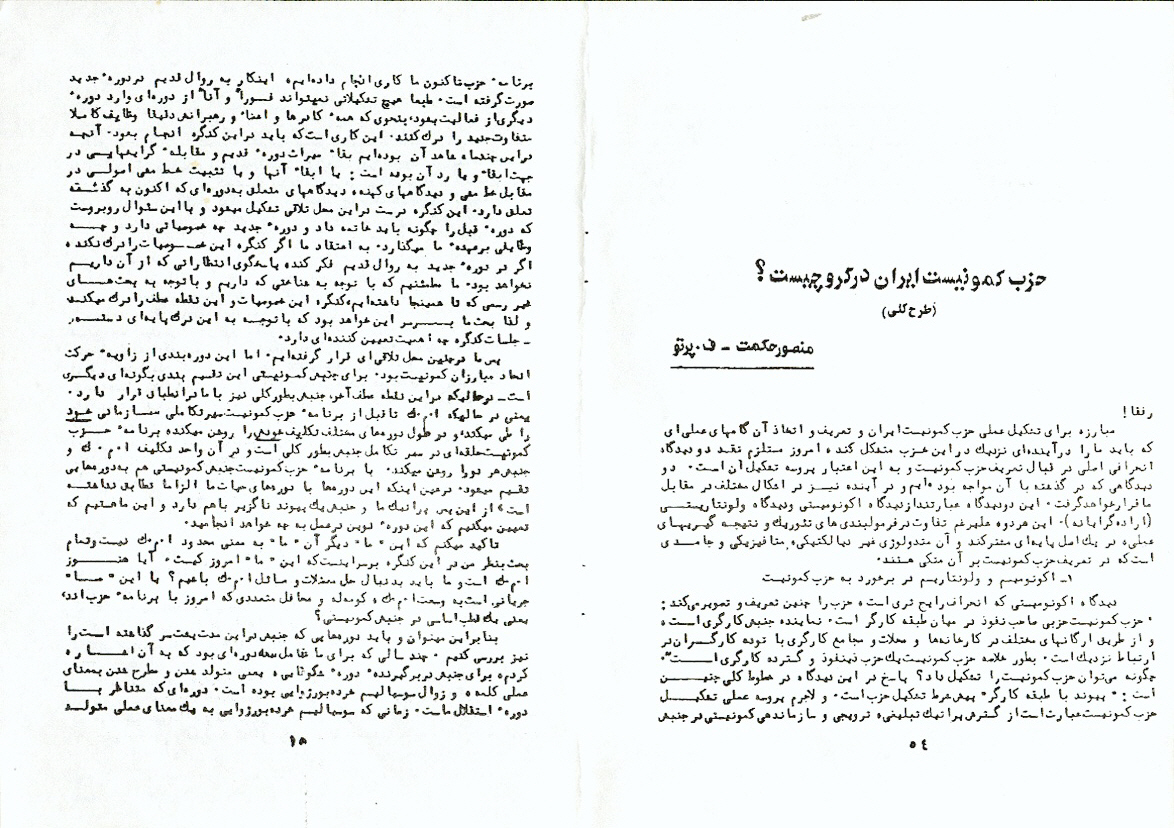 حزب کمونیست ایران در گرو چیست؟
(طرح کلی)
منصور حکمت ــ ف. پرتو
رفقا!
مبارزه برای تشکیل عملی حزب کمونیست ایران و تعریف و اتخاذ آن گامهای عملی‌ای
که باید ما را در آینده‌ای نزدیک در این حزب متشکل کند، امروز مستلزم نقد دو دیدگاه
انحرافی اصلی در قبال تعریف حزب کمونیست و به این اعتبار پروسه تشکیل آن است. دو
دیدگاهی که در گذشته با آن مواجه بوده‌ایم و در آینده نیز در اشکال مختلف در مقابل
ما قرار خواهد گرفت. این دو دیدگاه عبارتند از دیدگاه اکونومیستی و دیدگاه ولونتاریستی
(اراده‌گرایانه). این هردو، علیرغم تفاوت در فرمولبندی‌های تئوریک و نتیجه گیریهای
عملی، در یک اصل پایه‌ای مشترکند و آن متدولوژی غیر دیالکتیکی، متافیزیکی و جامدی
است که در تعریف حزب کمونیست بر آن متکی هستند.
۱ــ اکونومیسم و ولونتاریسم در برخورد به حزب کمونیست
دیدگاه اکونومیستی که انحراف رایج تری است، حزب را چنین تعریف و تصویر می‌کند:
"حزب کمونیست حزبی صاحب نفوذ در میان طبقه کارگر است. نماینده جنبش کارگری است،
و از طریق ارگانهای مختلف در کارخانه‌ها و محلات و مجامع کارگری با توده کارگران در
ارتباط نزدیک است. بطور خلاصه حزب کمونیست یک حزب ذینفوذ و گسترده کارگری است".
چگونه می‌توان حزب کمونیست را تشکیل داد؟ پاسخ در این دیدگاه در خطوط کلی چنین
است: "پیوند با طبقه کارگر" پیش شرط تشکیل حزب است. و لاجرم پروسه عملی تشکیل
حزب کمونیست عبارت است از گسترش پراتیک تبلیغی، ترویجی و سازماندهی کمونیستی در جنبش
۵٤
برنامه حزب تاکنون ما کاری انجام داده‌ایم، اینکار به روال قدیم در دوره جدید
صورت گرفته است. طبعا هیچ تشکیلاتی نمیتواند فورا و آنا از دوره‌ای وارد دوره
دیگری از فعالیت بشود، بنحوی که همه کادرها و اعضاء و رهبرانش دقیقا وظایف کاملا
متفاوت جدید را درک کنند. این کاری است که باید در این کنگره انجام بشود. آنچه
در این چندماه شاهد آن بوده‌ایم بقاء میراث دوره قدیم و مقابله گرایشهایی در
جهت ابقاء و یا رد آن بوده است: یا ابقاء آنها و یا تثبیت خط مشی اصولی در
مقابل خط مشی و دیدگاههای کهنه، دیدگاههای متعلق به دوره‌ای که اکنون به گذشته
تعلق دارد. این کنگره درست در این محل تلاقی تشکیل میشود و با این سئوال روبروست
که دوره قبل را چگونه باید خاتمه داد و دوره جدید چه خصوصیاتی دارد و چه
وظایفی برعهده ما میگذارد. به اعتقاد ما اگر کنگره این خصوصیات را درک نکند،
اگر در دوره جدید به روال قدیم فکر کند، پاسخگوی انتظاراتی که از آن داریم
نخواهد بود. ما مطمئنیم که با توجه به شناختی که داریم و باتوجه به بحثهای
غیر رسمی که تا همینجا داشته‌ایم، کنگره این خصوصیات و این نقطه عطف را درک میکند،
و لذا بحث ما برسر این خواهد بود که با توجه به این درک پایه‌ای دستور
ــ جلسات کنگره چه اهمیت تعیین کننده‌ای دارد.
پس ما در چنین محل تلاقی‌ای قرار گرفته‌ایم. اما این دوره‌بندی از زاویه حرکت
اتحاد مبارزان کمونیست بود. برای جنبش کمونیستی این تقسیم بندی بگونه‌ای دیگری
است ــ درحالیکه در این نقطه عطف آخر، جنبش بطور کلی نیز با ما در انطباق قرار دارد.
یعنی در حالیکه ا.م.ک تا قبل از برنامه حزب کمونیست سیر تکاملی سازمانی خود
را طی میکند، و در طول دوره‌های مختلف تکلیف خودش را روشن میکند، برنامه حزب
کمونیست حلقه‌ای در سیر تکامل جنبش بطور کلی است و در آن واحد تکلیف ا.م.ک و
جنبش هر دو را روشن میکند. با برنامه حزب کمونیست جنبش کمونیستی هم به دوره‌هایی
تقسیم میشود. درعین اینکه این دوره‌ها با دوره‌های حیات ما الزاما تطابق نداشته
است، از این پس پراتیک ما و جنبش یک پیوند ناگزیر باهم دارد و این ما هستیم که
تعیین میکنیم که این دوره نوین در عمل به چه خواهد انجامید.
تاکید میکنم که این "ما" دیگر آن "ما" به معنی محدود ا.م.ک نیست و تمام
بحث بنظر من در این کنگره برسر اینست که این "ما" امروز کیست. آیا هنوز
ا.م.ک است و ما باید بدنبال حل معضلات و مسائل ا.م.ک باشیم؟ یا این "ما"
جریانی است به وسعت ا.م.ک، کومه‌له و محافل متعددی که امروز با برنامه حزب‌اند،
یعنی یک قطب اساسی در جنبش کمونیستی؟
بنابراین میتوان و باید دوره‌هایی که جنبش در این مدت پشت سر گذاشته است را
نیز بررسی کنیم. چند سالی که برای ما شامل سه دوره‌ای بود که به آن اشاره
کردم، برای جنبش دربرگیرنده دوره شکوفایی، یعنی متولد شدن و مطرح شدن بمعنای
عملی کلمه، و زوال سوسیالیسم خرده‌بورژوایی بوده است. دوره‌ای که متناظر با
دوره استقلال ماست. زمانی که سوسیالیسم خرده‌بورژوایی به یک معنای عملی متولد
۱۵